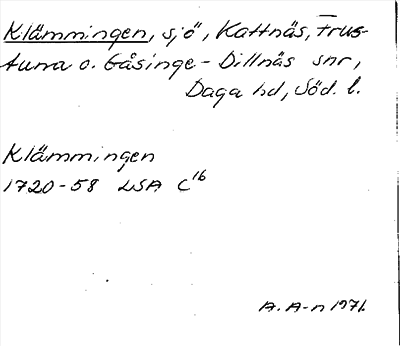 Klämmingen, sjö, Kattnäs, Frus-
tuna o. Gåsinge-Dillnäs snr,
Daga hd, Söd. l.
Klämmingen
1720-58 LSA C16
A. A-n 1971.